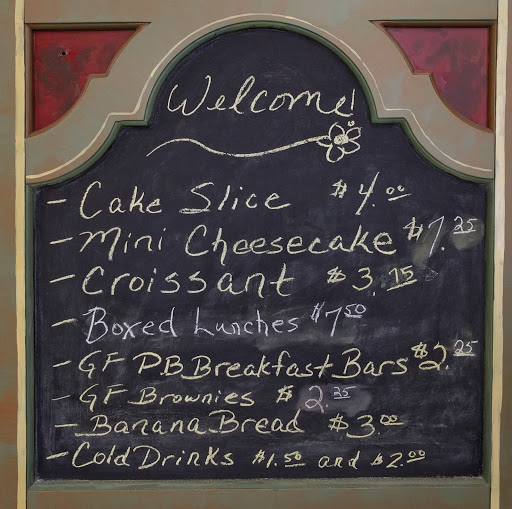 Welcome!
- Cake Slice $4.00
- Mini Cheesecake $7.25
- Croissant $3.75
- Boxed Lunches $7.50
- GF PB Breakfast Bars $2.25
- GF Brownies $2.25
- Banana Bread $3.00
- Cold Drinks $1.50 and $2.00